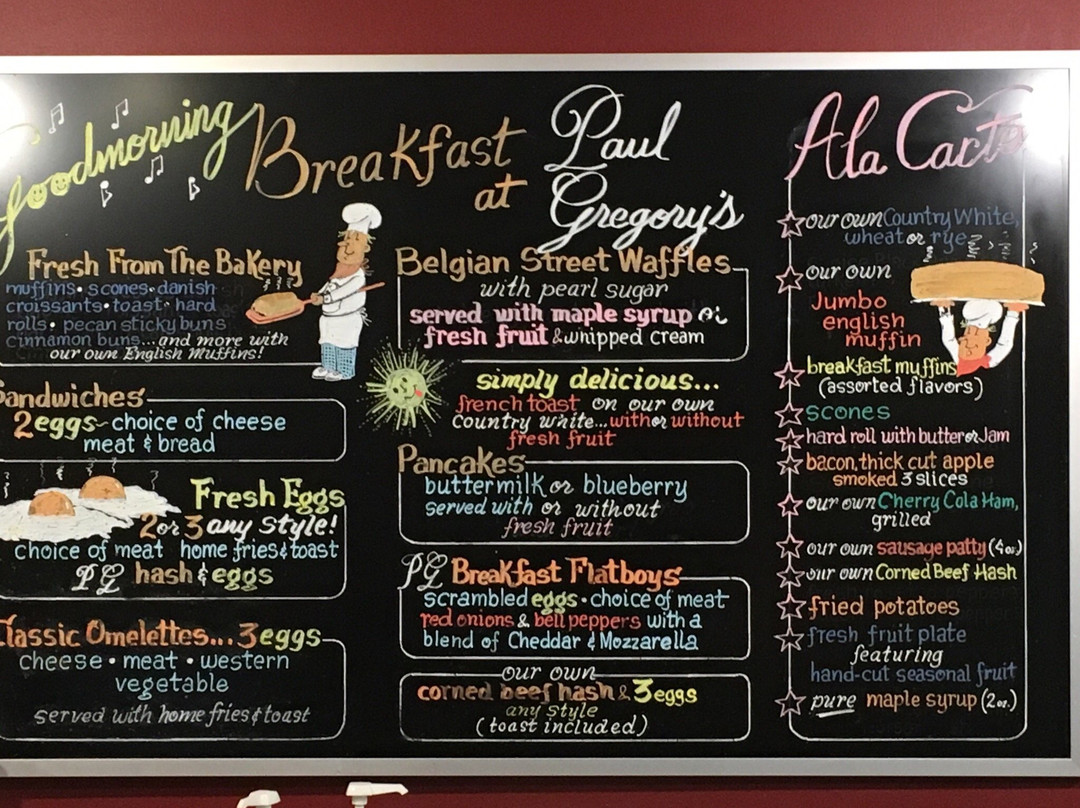 Goodmorning Breakfast
at
Paul
Gregory's
Fresh From The Bakery
muffins • scones • danish
croissants • toast • hard
rolls • pecan sticky buns
cinnamon buns...and more with
our own English Muffins!
Sandwiches
2 eggs ~ choice of cheese
meat & bread
Fresh Eggs
2 or 3 any style!
choice of meat home fries & toast
PG hash & eggs
Classic Omelettes...3 eggs
cheese • meat • western
vegetable
served with home fries & toast
Belgian Street Waffles
with pearl sugar
served with maple syrup or
fresh fruit & whipped cream
simply delicious...
french toast on our own
Country white...with or without
fresh fruit
Pancakes
buttermilk or blueberry
served with or without
fresh fruit
PG Breakfast Flatboys
scrambled eggs • choice of meat
red onions & bell peppers with a
blend of Cheddar & Mozzarella
our own
corned beef hash & 3 eggs
any style
(toast included)
Ala Carte
our own Country White,
wheat or rye
our own
Jumbo
english
muffin
breakfast muffins
(assorted flavors)
scones
hard roll with butter or Jam
bacon, thick cut apple
smoked 3 slices
our own Cherry Cola Ham,
grilled
our own sausage patty (4oz.)
our own Corned Beef Hash
fried potatoes
fresh fruit plate
featuring
hand-cut seasonal fruit
pure maple syrup (2oz.)